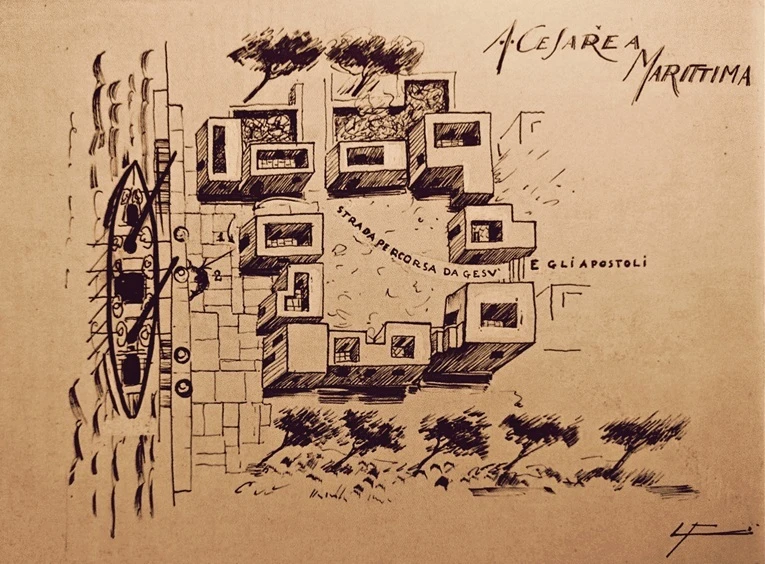 A. CESAREA
MARITTIMA
STRADA PERCORSA DA GESU' E GLI APOSTOLI
1
2